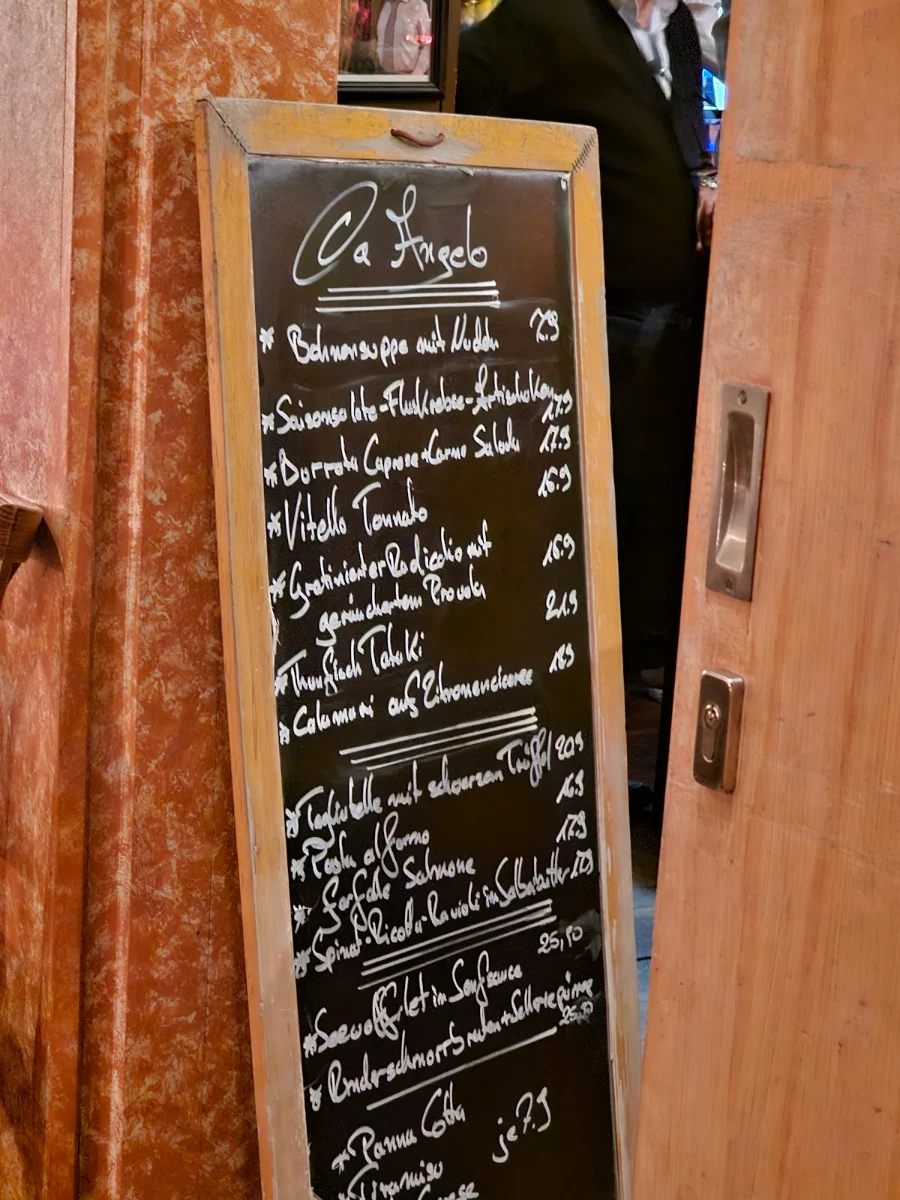 Ca Angelo
* Bohnensuppe mit Nudeln 7.9
* Saisonsalate-Flusskrebse-Artischoken 17.9
* Burrata Caprese + Salach 17.9
* Vitello Tonnato 15.9
* Gratinierter Radicchio mit
geräuchertem Provola 15.9
* Thunfisch Tataki 21.9
* Calamari auf Zitronencreme 18.9
* Tagliatelle mit schwarzem Trüffel 20.9
* Pasta al forno 16.9
* Farfalle Salmone 17.9
* Spinat-Ricotta-Ravioli in Salbeibutter 17.9
* Seewolffilet in Senfsauce 25,90
* Rinderschmorbraten + Selleriepürree 25,90
* Panna Cotta
* Tiramisu je 7.9